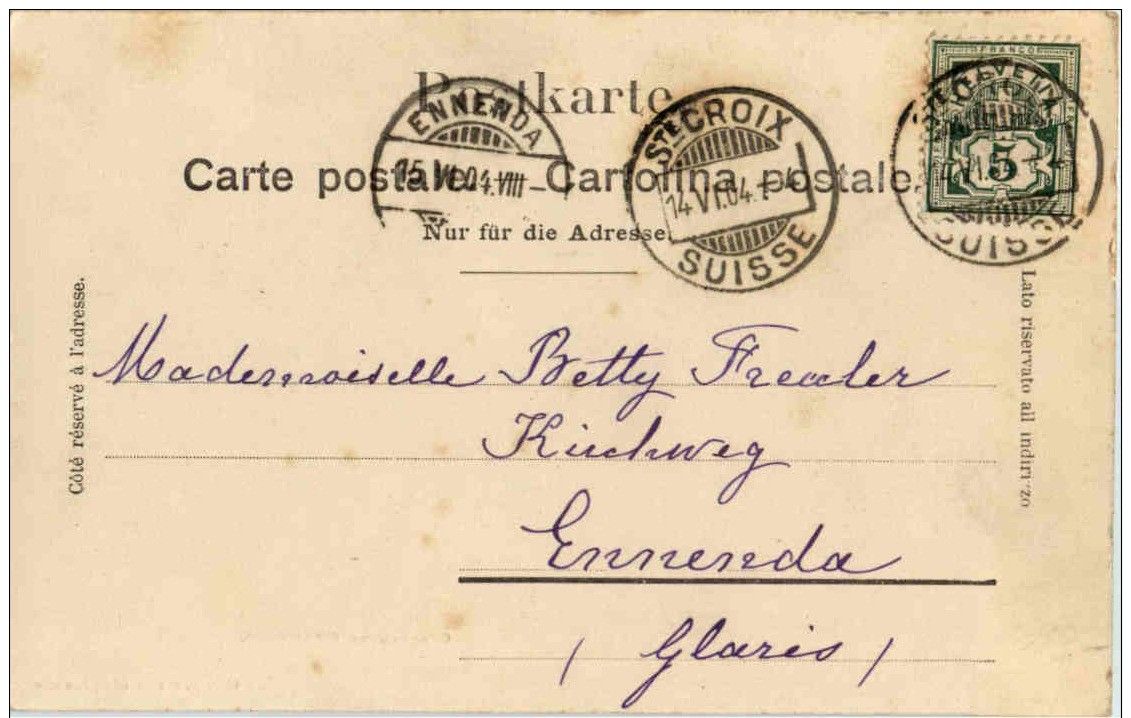 FRANCO
5
Postkarte
ENNENDA
15.VI.04.VIII-
STE CROIX
14 VI.04.
SUISSE
SUISSE
Carte postale. Cartolina postale.
Nur für die Adresse.
Côté réservé à l'adresse.
Lato riservato all indirizzo
Mademoiselle Betty Freuler
Kirchweg
Ennenda
(Glaris)